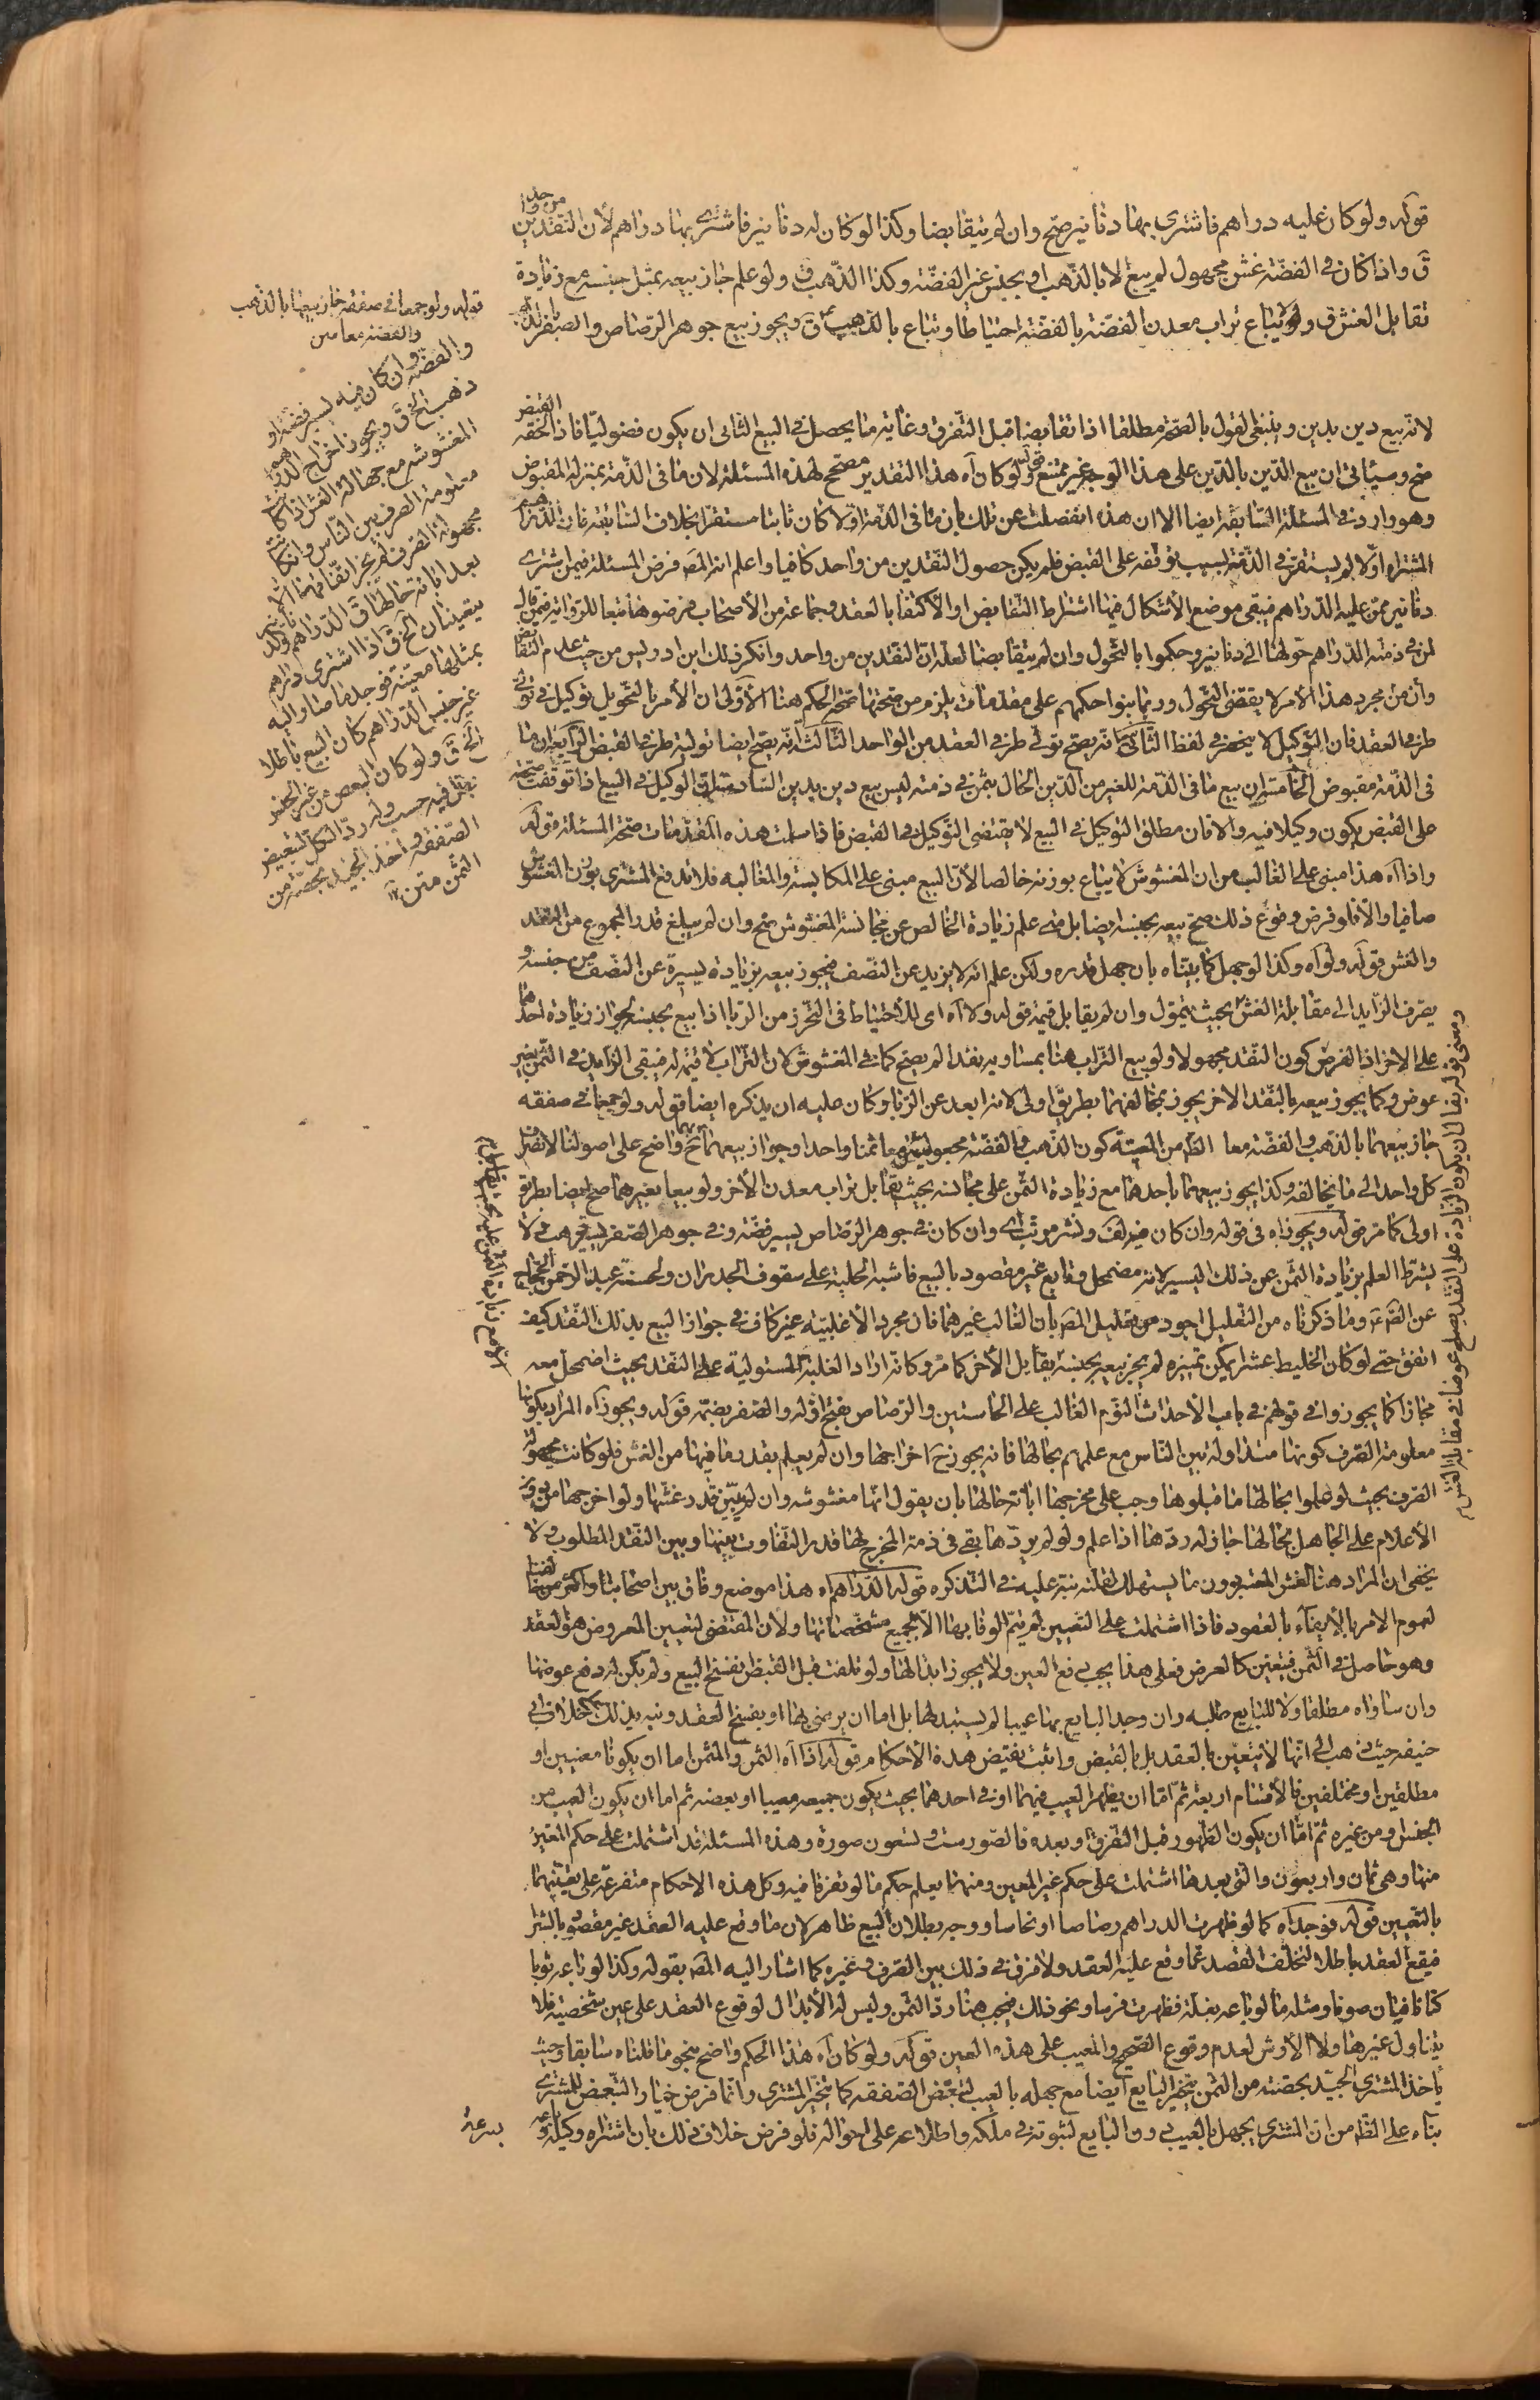 قوله ولو كان عليه دراهم فاشترى بها دنانير صح وان لم يتقابضا وكذا لو كان له دنانير فاشترى بها دراهم لأن النقدين
من واحد
ق واذا كان في الفضة غش مجهول لم يبع الا بالذهب او بجنس غير الفضة وكذا الذهب ق ولو علم جاز بيعه بمثل جنسه مع زيادة
تقابل الغش ق ولا يباع تراب معدن الفضة بالفضة احتياطا ويباع بالذهب ق ويجوز بيع جوهر الرصاص والصفر بالذهب
قوله ولو جمعا في صفقة جاز بيعهما بالذهب
والفضة معا متن
والفضة وان كان فيه يسير فضة او
ذهب الخ ق ويجوز اخراج الدراهم
المغشوشة مع جهالة الغش اذا كانت
معلومة الصرف بين الناس وان كانت
مجهولة الصرف لم يجز انفاقها الا
بعد ابانة حالها ق الدراهم والدنانير
يتعينان الخ ق اذا اشترى دراهم
بمثلها معينة فوجد ما صار اليه
غير جنس الدراهم كان البيع باطلا
الخ ق ولو كان البعض من غير الجنس
بطل فيه حسب وله رد الكل لتبعيض
الصفقة واخذ الجيد بحصته من
الثمن متن
لانه بيع دين بدين وينبغي القول بالصحة مطلقا اذا تقابضا قبل التفرق وغايته ما يحصل في البيع الثاني ان يكون فضوليا فاذا لحقه القبض
صح وسيأتي ان بيع الدين بالدين على هذا الوجه غير ممتنع قوله ولو كان آه هذا التقدير مصحح لهذه المسئلة لان ما في الذمة بمنزلة المقبوض
وهو وارد في المسئلة السابقة ايضا الا ان هذه انفصلت عن تلك بان ما في الذمة اولا كان ثابتا مستقرا بخلاف السابقة فان الدراهم
المشتراه اولا لم يستقر في الذمة بسبب توقفه على القبض فلم يكن حصول النقدين من واحد كافيا واعلم ان المص فرض المسئلة فيمن اشترى
دنانير ممن عليه الدراهم فيبقى موضع الأشكال فيها اشتراط التقابض او الأكتفا بالعقد وجماعة من الأصحاب فرضوها تبعا للرواية فيمن قال
لمن في ذمته الدراهم حولها الى دنانير وحكموا بالتحول وان لم يتقابضا لعلة ان النقدين من واحد وانكر ذلك ابن ادريس من حيث عدم التقابض
وأن من مجرد هذا الأمر لا يقتضي التحول وربما بنوا حكمهم على مقدمات يلزم من صحتها صحة الحكم هنا الأولى ان الأمر بالتحويل توكيل في تولي
طرفي العقد فان التوكيل لا ينحصر في لفظ الثانية انه يصح تولي طرفي العقد من الواحد الثالثة انه يصح ايضا تولية طرفي القبض الرابعة ان ما
في الذمة مقبوض الخامسة ان بيع ما في الذمة للغير من الدين الحال بثمن في ذمته ليس بيع دين بدين السادسة ان الوكيل في البيع اذا توقفت صحته
على القبض يكون وكيلا فيه والا فان مطلق التوكيل في البيع لا يقتضي التوكيل في القبض فاذا سلمت هذه المقدمات صحت المسئلة قوله
واذا آه هذا مبني على الغالب من ان المغشوش لا يباع بوزنه خالصا لأن البيع مبني على المكايسة والمغالبة فلا يدفع المشتري بوزن الغش
صافيا والا فلو فرض وقوع ذلك صح بيعه بجنسه ايضا بل متى علم زيادة الخالص عن مجانسه المغشوش صح وان لم يبلغ قدر المجموع من النقد
والغش قوله ولو آه وكذا لو جهل كما بيناه بان جهل قدره ولكن علم انه لا يزيد عن النصف فيجوز بيعه بزيادة يسيرة عن النصف من جنسه و
يصرف الزايد الى مقابلة الغش بحيث يتمول وان لم يقابل قيمته قوله ولا آه اي للأحتياط في التحرز من الربا اذا بيع بجنسه لجواز زيادة احدهما
على الاخر اذ الفرض كون النقد مجهولا ولو بيع التراب هنا بمساويه نقدا لم يصح كما في المغشوش لان التراب لا قيمة له فيبقى الزايد في الثمن بغير
عوض وكما يجوز بيعه بالنقد الاخر يجوز بمخالفهما بطريق اولى لانه ابعد عن الربا وكان عليه ان يذكره ايضا قوله ولو جمعا في صفقة
جاز بيعهما بالذهب والفضة معا الظ من المعية كون الذهب والفضة مجعولين معا ثمنا واحدا وجواز بيعهما بهما ح واضح على اصولنا لانصراف
كل واحد الى ما يخالفه وكذا يجوز بيعهما باحدهما مع زيادة الثمن على مجانسه بحيث يقابل تراب معدن الأخر ولو بيعا بغيرهما صح ايضا بطريق
اولى كما مر قوله ويجوز آه في قوله وان كان فيه لف ونشر مرتب اي وان كان في جوهر الرصاص يسير فضة وفي جوهر الصفر يسير ذهب لا
يشترط العلم بزيادة الثمن عن ذلك اليسير لانه مضمحل وتابع غير مقصود بالبيع فاشبه الحلية على سقوف الجدران ولحسنة عبد الرحمن بن الحجاج
عن الص ع وما ذكرناه من التعليل اجود من تعليل المص بان الغالب غيرهما فان مجرد الأغلبية غير كاف في جواز البيع بذلك النقد كيف
اتفق حتى لو كان الخليط عشرا يمكن تمييزه لم يجز بيعه بجنسه يقابل الأخر كما مر وكانه اراد الغلبة المستولية على النقد بحيث اضمحل معه
مجازا كما يجوزوا في قولهم في باب الأحداث النوم الغالب على الحاستين والرصاص بفتح اوله والصفر بضمه قوله ويجوز آه المراد بكونها
معلومة الصرف كونها متداولة بين الناس مع علمهم بحالها فانه يجوز ح اخراجها وان لم يعلم بقدر ما فيها من الغش فلو كانت مجهولة
الصرف بحيث لو علموا بحالها ما قبلوها وجب على مخرجها ابانة حالها بان يقول انها مغشوشة وان لم يبين قدر غشها ولو اخرجها من دون
الأعلام على الجاهل بحالها جاز له ردها اذا علم ولو لم يردها بقي في ذمة المخرج لها قدر التفاوت بينها وبين النقد المطلوب ولا
يخفى ان المراد هنا بالغش المعتبر دون ما يستهلك لقلته نبه عليه في التذكره قوله الدراهم آه هذا موضع وفاق بين اصحابنا واكثر من خالفنا
لعموم الامر بالأيفاء بالعقود فاذا اشتملت على التعيين لم يتم الوفا بها الا بجميع مشخصاتها ولأن المقتضي لتعيين المعروض هو العقد
وهو حاصل في الثمن فيتعين كالعرض فعلى هذا يجب دفع العين ولا يجوز ابدالها ولو تلفت قبل القبض انفسخ البيع ولم يكن له دفع عوضها
وان ساواه مطلقا ولا للبايع طلبه وان وجد البايع بها عيبا لم يستبدلها بل اما ان يرضى بها او يفسخ العقد ونبه بذلك على خلاف ابي
حنيفه حيث ذهب الى انها لا تتعين بالعقد بل بالقبض واثبت نقيض هذه الأحكام قوله اذا آه الثمن والمثمن اما ان يكونا معينين او
مطلقين او مختلفين فالأقسام اربعة ثم اما ان يظهر العيب فيهما او في احدهما بحيث يكون جميعه معيبا او بعضه ثم اما ان يكون العيب من
الجنس ومن غيره ثم اما ان يكون الظهور قبل التفرق او بعده فالصور ست وتسعون صورة وهذه المسئلة قد اشتملت على حكم المعين
منها وهي ثمان واربعون والتي بعدها اشتملت على حكم غير المعين ومنها يعلم حكم ما لو تفرقا فيه وكل هذه الاحكام متفرعة على تعينهما
بالتعيين قوله فوجد آه كما لو ظهرت الدراهم رصاصا او نحاسا ووجه بطلان البيع ظاهر لان ما وقع عليه العقد غير مقصود بالشراء
فيقع العقد باطلا لتخلف القصد عما وقع عليه العقد ولا فرق في ذلك بين الصرف وغيره كما اشار اليه المص بقوله وكذا لو باعه ثوبا
كتانا فبان صوفا ومثله ما لو باعه بغلة فظهرت فرسا ونحو ذلك فيجب هنا رد الثمن وليس له الأبدال لوقوع العقد على عين شخصية فلا
يتناول غيرها ولا الأرش لعدم وقوع الصحيح والمعيب على هذه العين قوله ولو كان آه هذا الحكم واضح بنحو ما قلناه سابقا وحيث
يأخذ المشتري الجيد بحصته من الثمن يتخير البايع ايضا مع جهله بالعيب لتبعض الصفقه كما يتخير المشتري وانما فرض خيار التبعض للمشتري
بناء على الظ من ان المشتري يجهل بالعيب دون البايع لثبوته في ملكه واطلاعه على احواله فلو فرض خلاف ذلك بان اشتراه وكيله وباعه
بسرعة
ومعنى قوله تقابل ان يكون الزيادة على النقد يصلح عوضا في مقابلة الغش